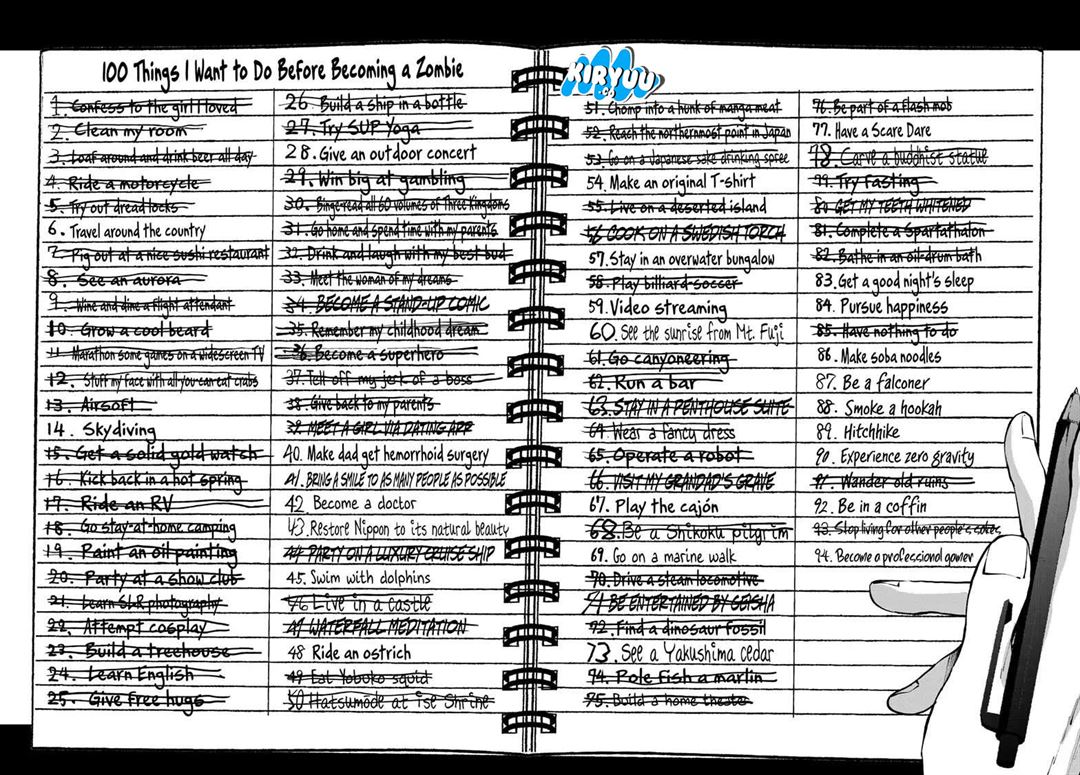 100 Things I Want to Do Before Becoming a Zombie
1. Confess to the girl I loved
2. Clean my room
3. Loaf around and drink beer all day
4. Ride a motorcycle
5. Try out dreadlocks
6. Travel around the country
7. Pig out at a nice sushi restaurant
8. See an aurora
9. Wine and dine a flight attendant
10. Grow a cool beard
11. Marathon some games on a widescreen TV
12. Stuff my face with all-you-can-eat crabs
13. Airsoft
14. Skydiving
15. Get a solid gold watch
16. Kick back in a hot spring
17. Ride an RV
18. Go stay-at-home camping
19. Paint an oil painting
20. Party at a show club
21. Learn SLR photography
22. Attempt cosplay
23. Build a treehouse
24. Learn English
25. Give free hugs
26. Build a ship in a bottle
27. Try SUP Yoga
28. Give an outdoor concert
29. Win big at gambling
30. Binge-read all 60 volumes of Three Kingdoms
31. Go home and spend time with my parents
32. Drink and laugh with my best bud
33. Meet the woman of my dreams
34. BECOME A STAND-UP COMIC
35. Remember my childhood dream
36. Become a superhero
37. Tell off my jerk of a boss
38. Give back to my parents
39. MEET A GIRL VIA DATING APP
40. Make dad get hemorrhoid surgery
41. BRING A SMILE TO AS MANY PEOPLE AS POSSIBLE
42. Become a doctor
43. Restore Nippon to its natural beauty
44 PARTY ON A LUXURY CRUISE SHIP
45. Swim with dolphins
46 Live in a castle
47 WATERFALL MEDITATION
48 Ride an ostrich
49 Eat Yobuko squid
50 Hatsumōde at Ise Shrine
KIRYUU
.CO
51. Chomp into a hunk of manga meat
52. Reach the northernmost point in Japan
53. Go on a Japanese sake drinking spree
54. Make an original T-shirt
55. Live on a deserted island
56 COOK ON A SWEDISH TORCH
57. Stay in an overwater bungalow
58. Play billiard soccer
59. Video streaming
60. See the sunrise from Mt. Fuji
61. Go canyoneering
62. Run a bar
63. STAY IN A PENTHOUSE SUITE
64. Wear a fancy dress
65. Operate a robot
66. VISIT MY GRANDAD'S GRAVE
67. Play the cajón
68. Be a Shikoku pilgrim
69. Go on a marine walk
70. Drive a steam locomotive
71 BE ENTERTAINED BY GEISHA
72. Find a dinosaur fossil
73. See a Yakushima cedar
74. Pole fish a marlin
75. Build a home theater
76. Be part of a flash mob
77. Have a Scare Dare
78. Carve a buddhist statue
79. Try Fasting
80. GET MY TEETH WHITENED
81. Complete a Spartathalon
82. Bathe in an oil-drum bath
83. Get a good night's sleep
84. Pursue happiness
85. Have nothing to do
86. Make soba noodles
87. Be a falconer
88. Smoke a hookah
89. Hitchhike
90. Experience zero gravity
91. Wander old ruins
92. Be in a coffin
93. Stop living for other people's sakes
94. Become a professional gamer